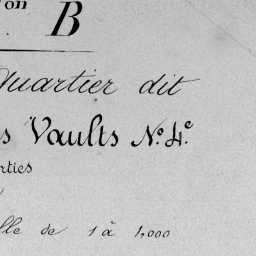 on B
Quartier dit
s Vaults No. 4e.
rties
lle de 1 à 1,000